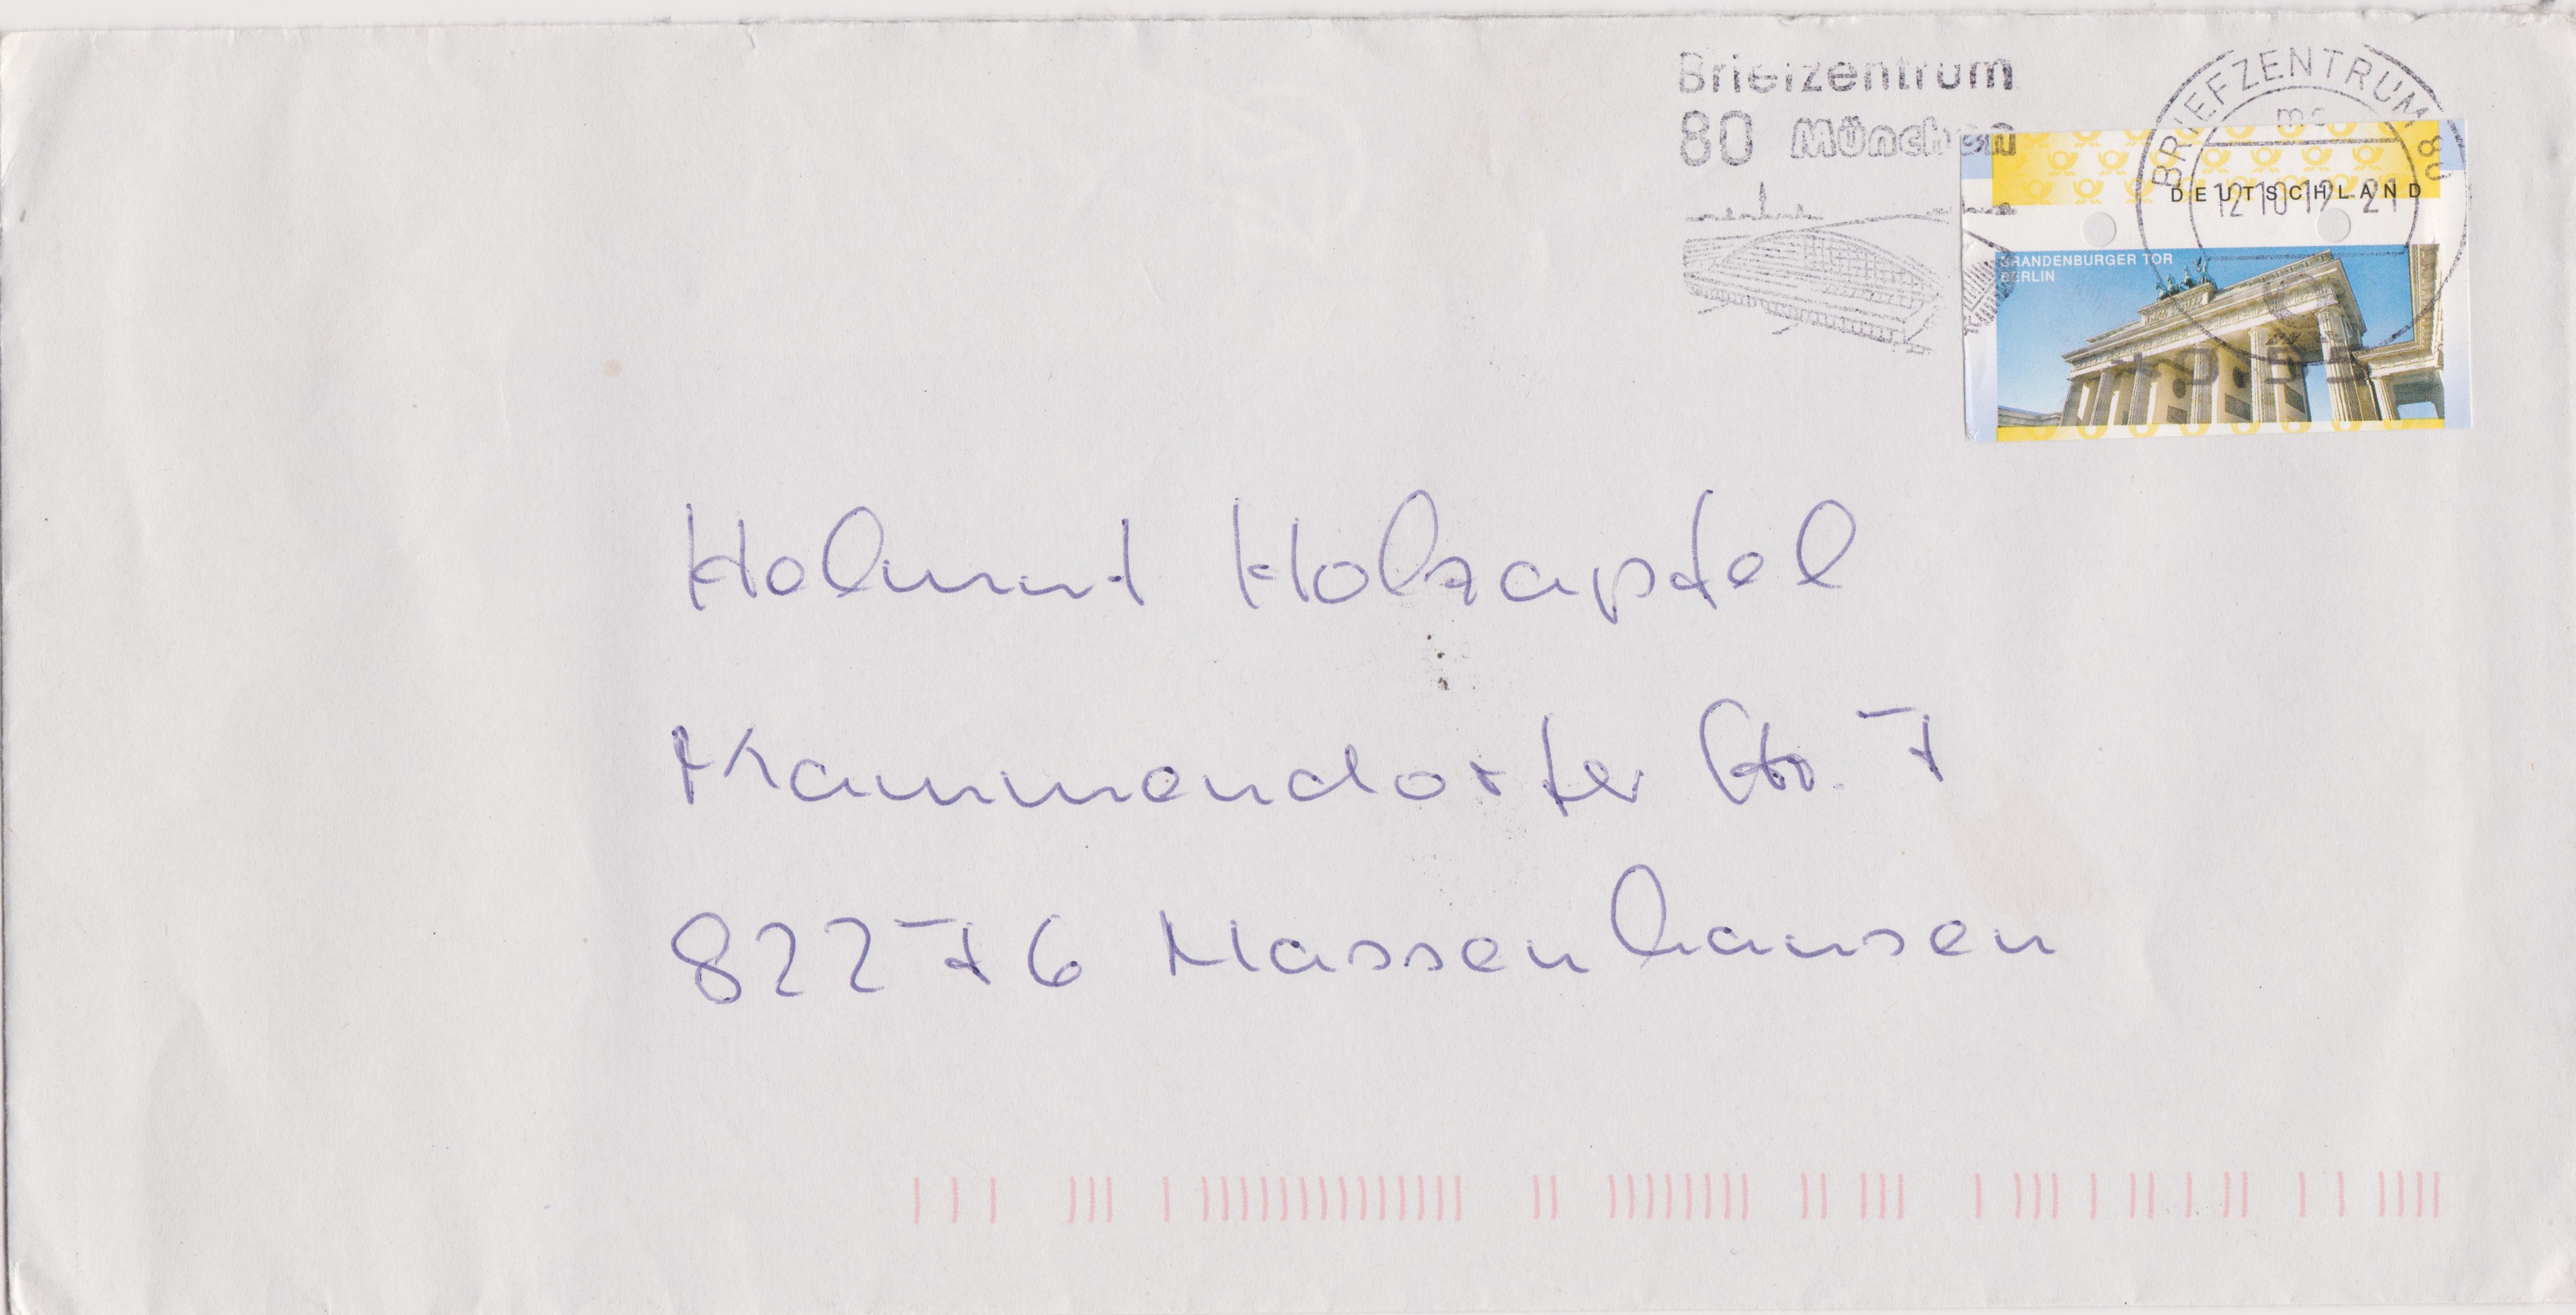 Briefzentrum
80 München
BRIEFZENTRUM 80
mc
DEUTSCHLAND
12.10.12-21
BRANDENBURGER TOR
BERLIN
Helmut Holzapfel
Nannendorfer Str. 7
82276 Nassenhausen